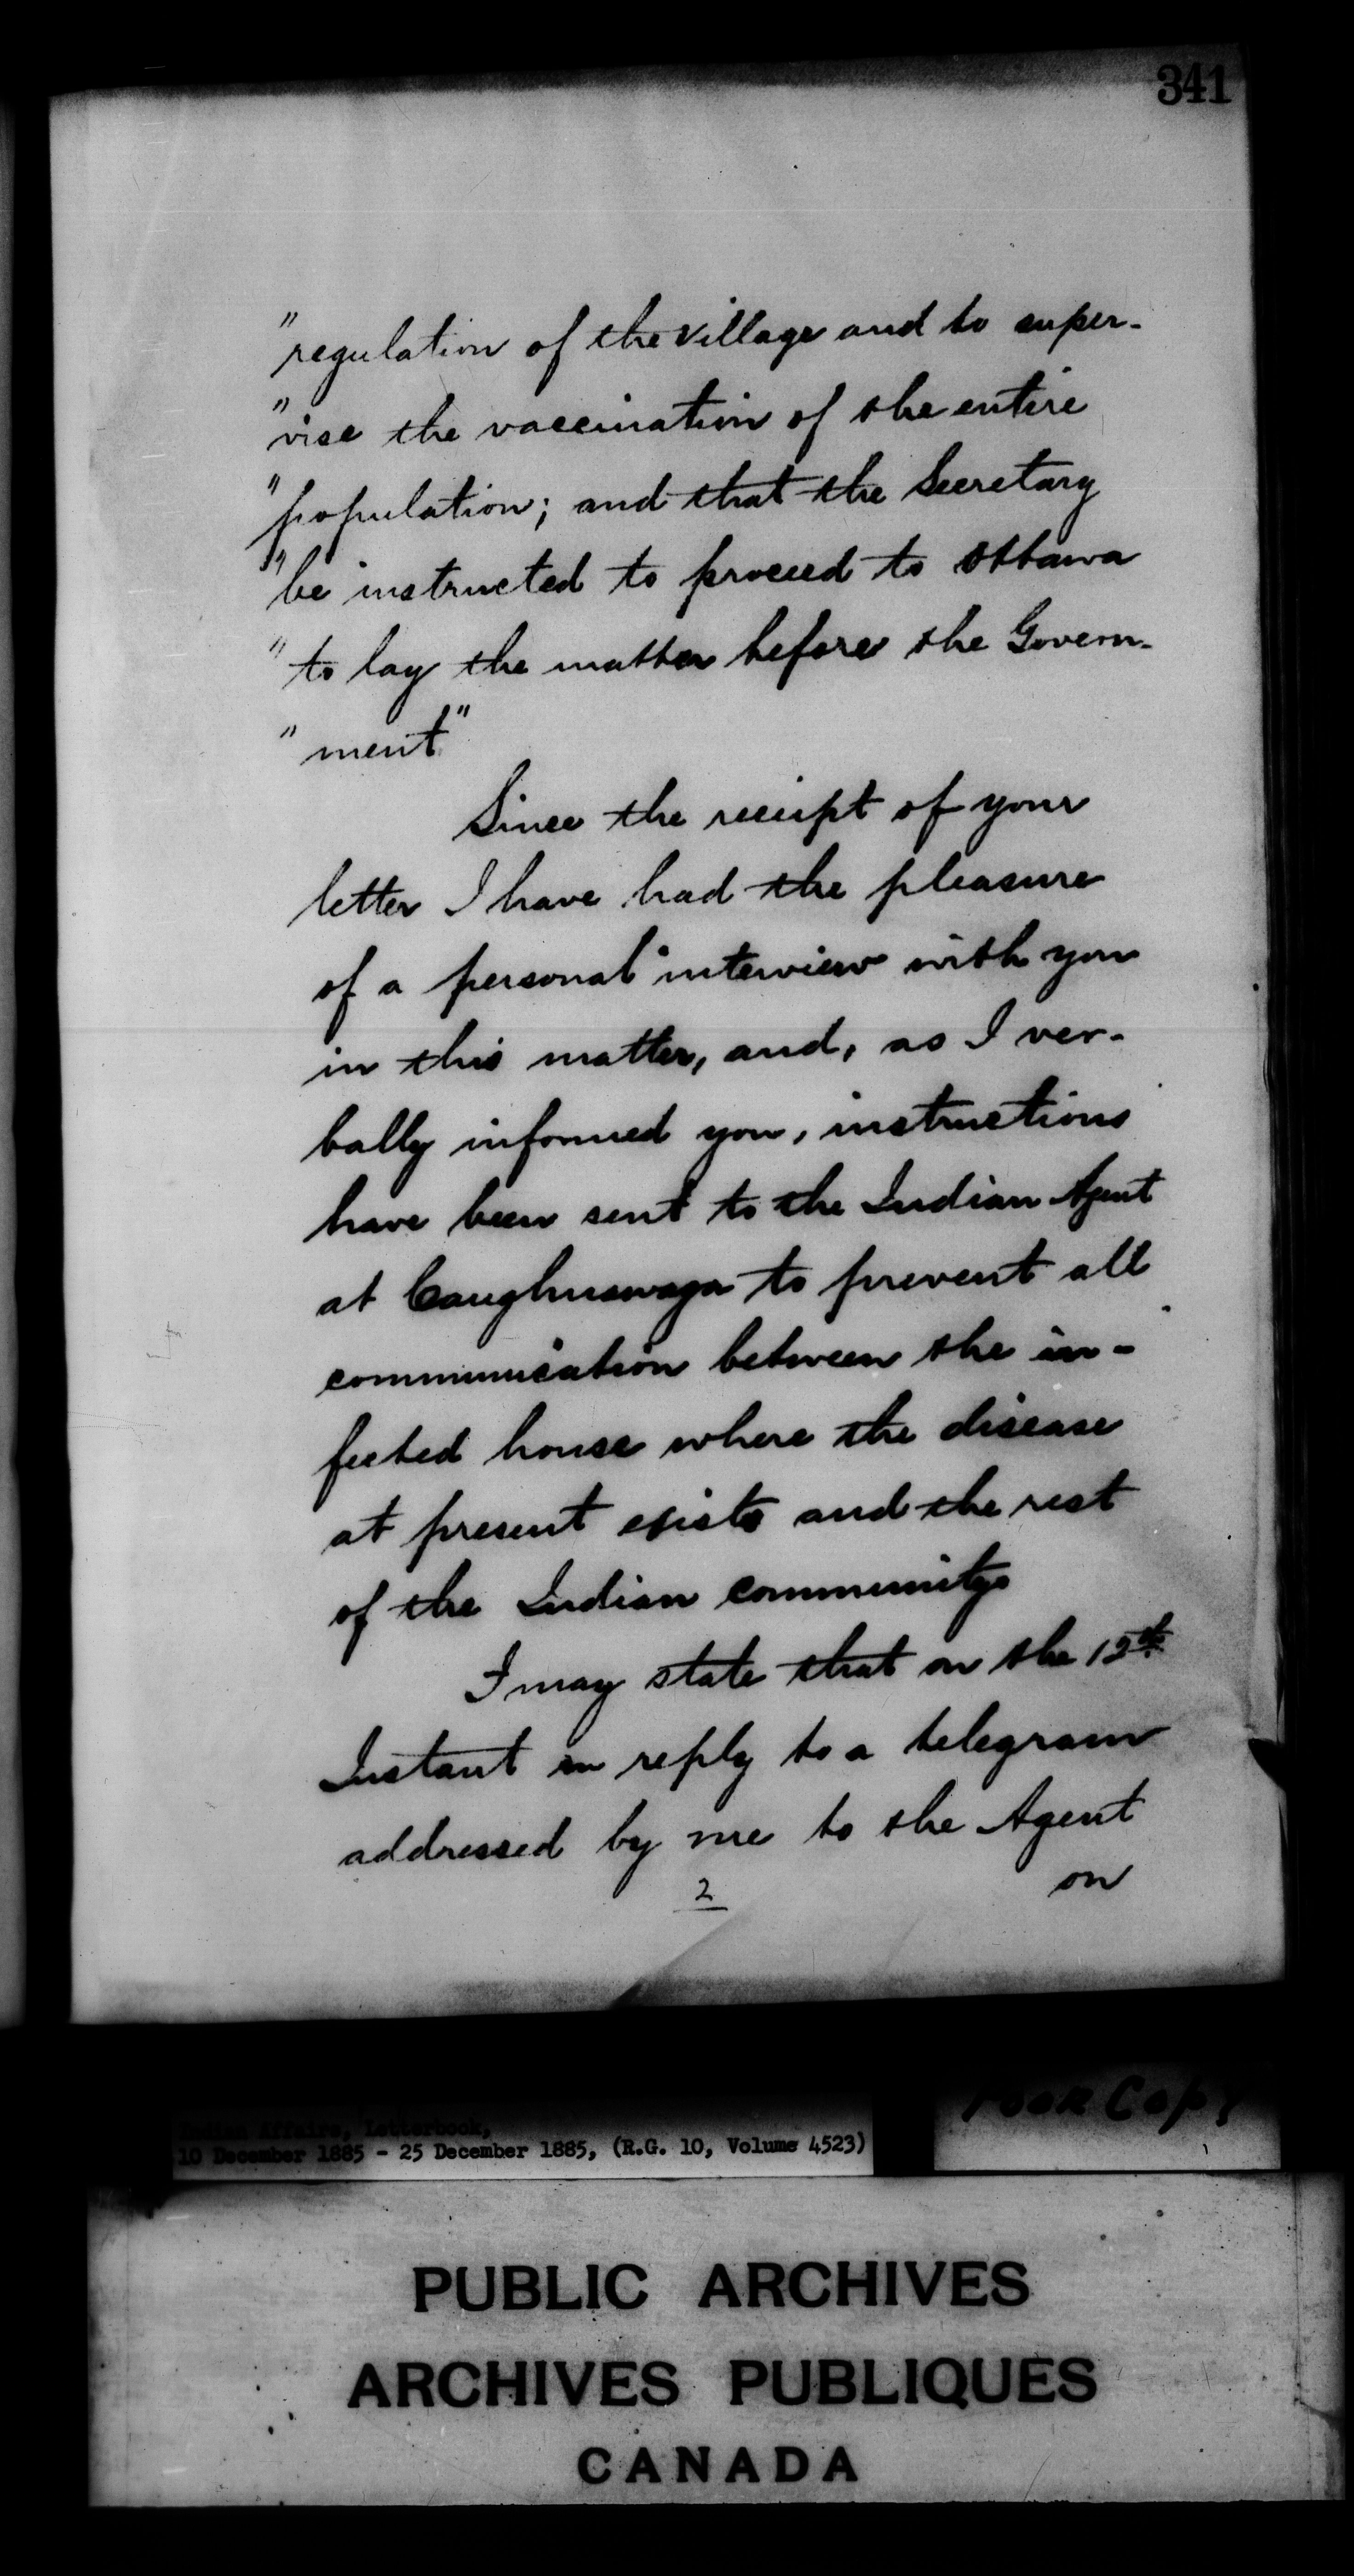 341
"regulation of the village and to super-
"vise the vaccination of the entire
"population; and that the Secretary
"be instructed to proceed to Ottawa
"to lay the matter before the Govern-
"ment"
Since the receipt of your
letter I have had the pleasure
of a personal interview with you
in this matter, and, as I ver-
bally informed you, instructions
have been sent to the Indian Agent
at Caughnawaga to prevent all
communication between the in-
fected house where the disease
at present exists and the rest
of the Indian community.
I may state that on the 12th
Instant in reply to a telegram
addressed by me to the Agent
on
2
Poor Copy
Indian Affairs, Letterbook,
10 December 1885 - 25 December 1885, (R.G. 10, Volume 4523)
PUBLIC ARCHIVES
ARCHIVES PUBLIQUES
CANADA